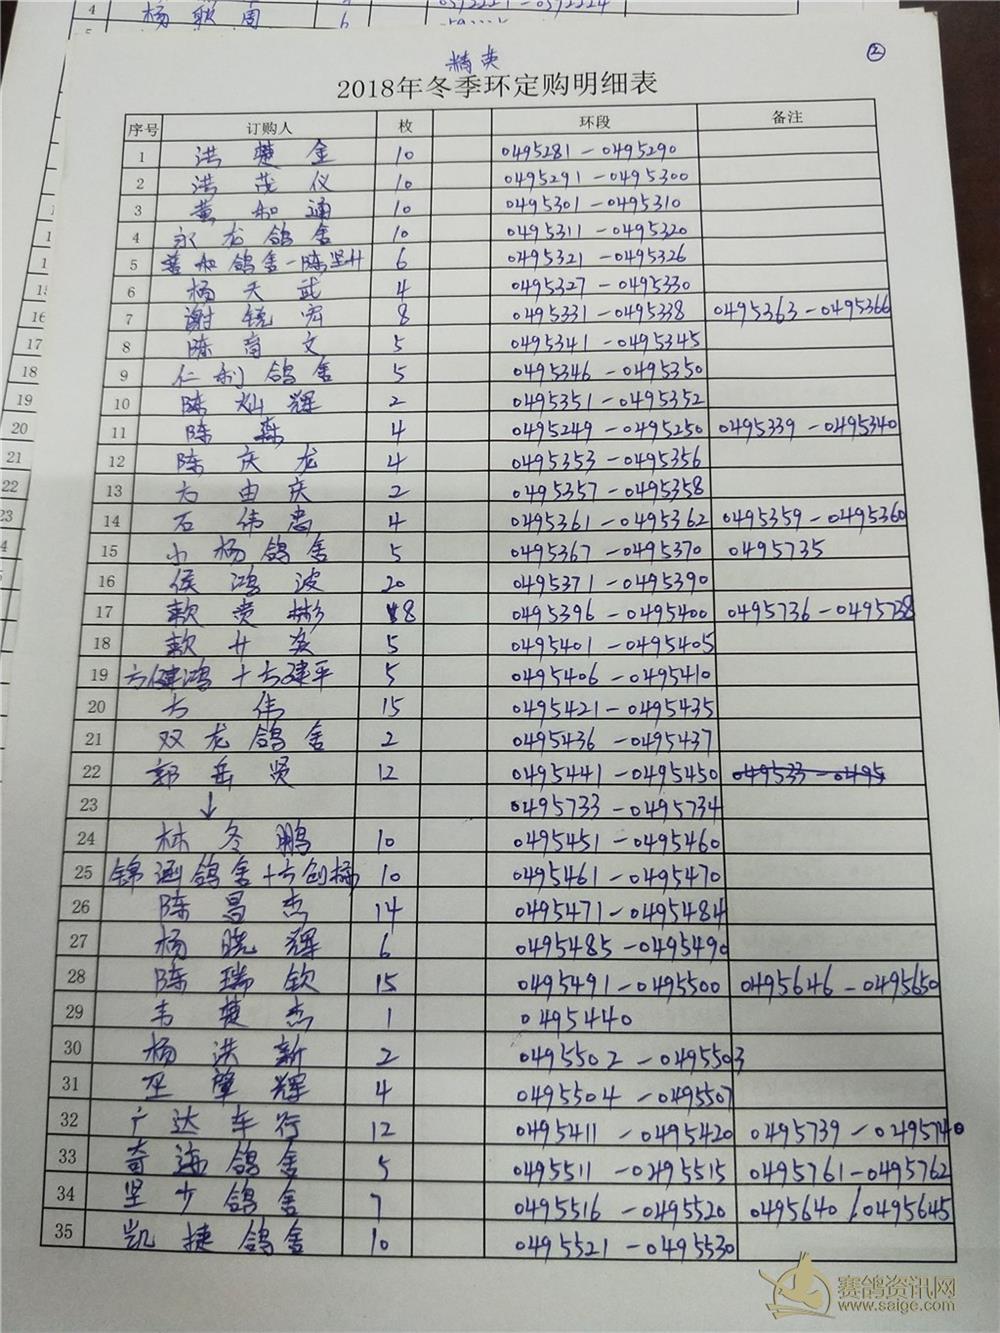 4 杨 周 6 0592221-0592224
精英
②
2018年冬季环定购明细表
序号 订购人 枚 环段 备注
1 洪楚金 10 0495281-0495290
2 洪茂仪 10 0495291-0495300
3 黄和通 10 0495301-0495310
4 永龙鸽舍 10 0495311-0495320
5 鸽舍-陈坚 6 0495321-0495326
6 杨天武 4 0495327-0495330
7 谢锐宏 8 0495331-0495338 0495363-0495366
8 陈育文 5 0495341-0495345
9 仁利鸽舍 5 0495346-0495350
10 陈灿辉 2 0495351-0495352
11 陈 4 0495249-0495250 0495339-0495340
12 陈庆龙 4 0495353-0495356
13 方由庆 2 0495357-0495358
14 石伟忠 4 0495361-0495362 0495359-0495360
15 小杨鸽舍 5 0495367-0495370 0495735
16 侯鸿波 20 0495371-0495390
17 彬 8 0495396-0495400 0495736-0495738
18 5 0495401-0495405
19 方健鸿+方建平 5 0495406-0495410
20 方伟 15 0495421-0495435
21 双龙鸽舍 2 0495436-0495437
22 郭岳贤 12 0495441-0495450 049533-0495
23 ↓ 0495733-0495734
24 林冬鹏 10 0495451-0495460
25 锦涵鸽舍+方创 10 0495461-0495470
26 陈昌杰 14 0495471-0495484
27 杨晓辉 6 0495485-0495490
28 陈瑞钦 15 0495491-0495500 0495646-0495650
29 韦楚杰 1 0495440
30 杨洪新 2 0495502-0495503
31 巫肇辉 4 0495504-0495507
32 广达车行 12 0495411-0495420 0495739-0495740
33 奇海鸽舍 5 0495511-0495515 0495761-0495762
34 坚少鸽舍 7 0495516-0495520 0495640/0495645
35 凯捷鸽舍 10 0495521-0495530
16
17
18
19
20
21
22
23
赛鸽资讯网
www.saige.com